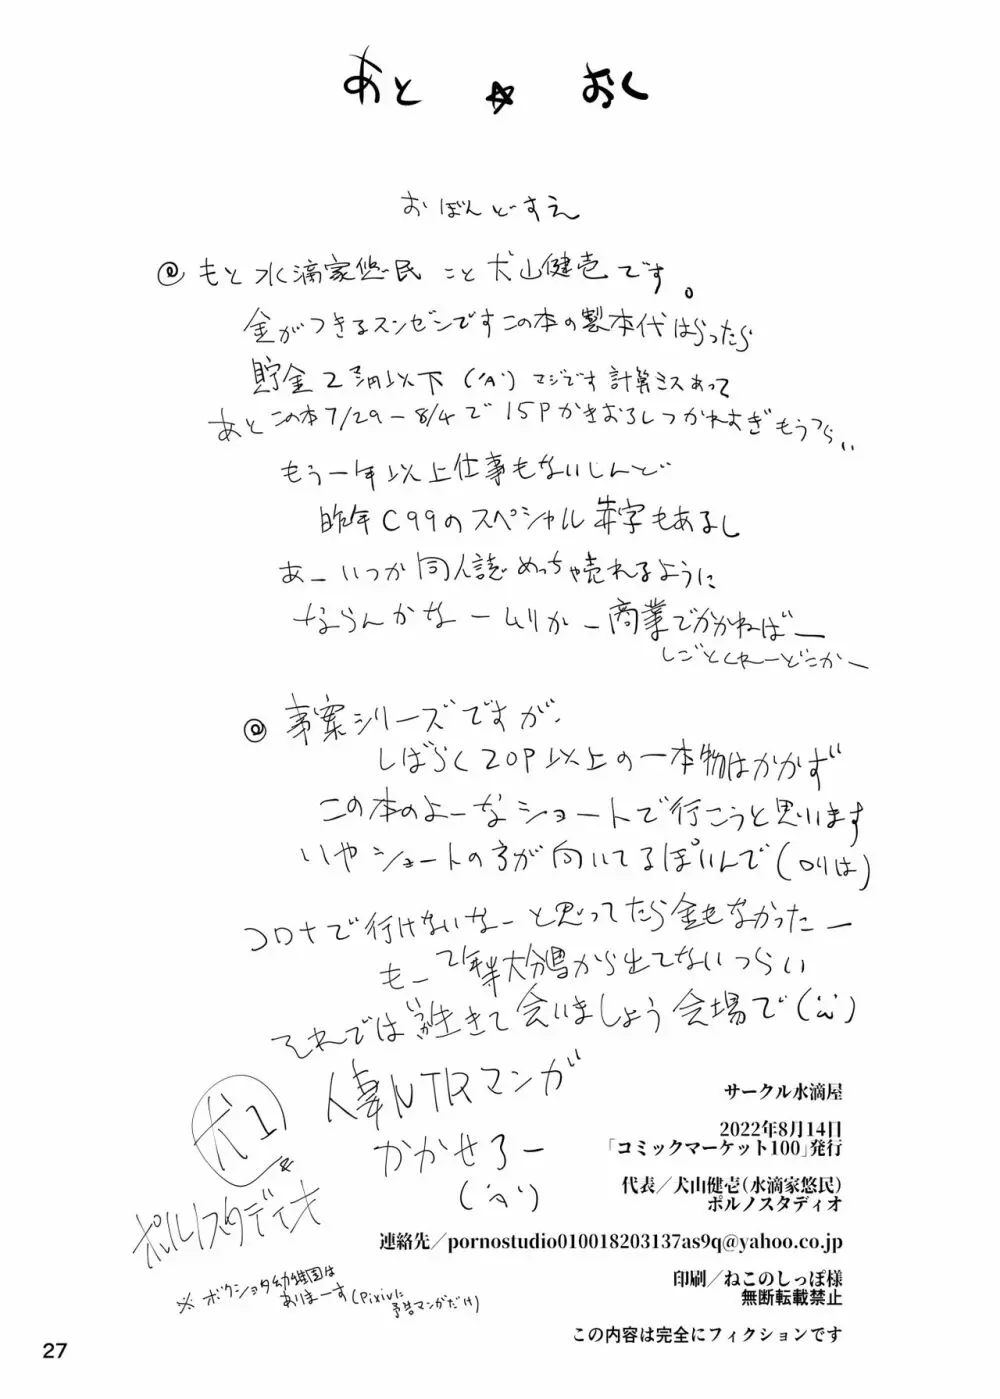 あと ☆ おく
おばんどすえ
@ もと水滴家悠民こと犬山健壱です。
金がつきるスンゼンですこの本の製本代はらったら
貯金2万円以下 ('A`) マジです計算ミスあって
あとこの本7/29-8/4で15Pかきおろしつかれすぎもうつらい
もう一年以上仕事もないじんど
昨年C99のスペシャル赤字もあるし
あーいつか同人誌めっちゃ売れるように
ならんかなームリかー商業でかかねばー
しごとくれーどこかー
@ 事案シリーズですが、
しばらく20P以上の一本物はかかず
この本のよーなショートで行こうと思います
いやショートの方が向いてるぽいんで(ロリは)
コロナで行けないなーと思ってたら金もなかったー
もー2年半大分県から出てないつらい
それでは生きて会いましょう会場で
人妻NTRマンガ
かかせろー
('A`)
犬1
ポルノスタディオ
※ボクショタ幼稚園は
ありまーす(Pixivに
予告マンガだけ)
サークル水滴屋
2022年8月14日
「コミックマーケット100」発行
代表／犬山健壱(水滴家悠民)
ポルノスタディオ
連絡先／pornostudio010018203137as9q@yahoo.co.jp
印刷／ねこのしっぽ様
無断転載禁止
この内容は完全にフィクションです
27